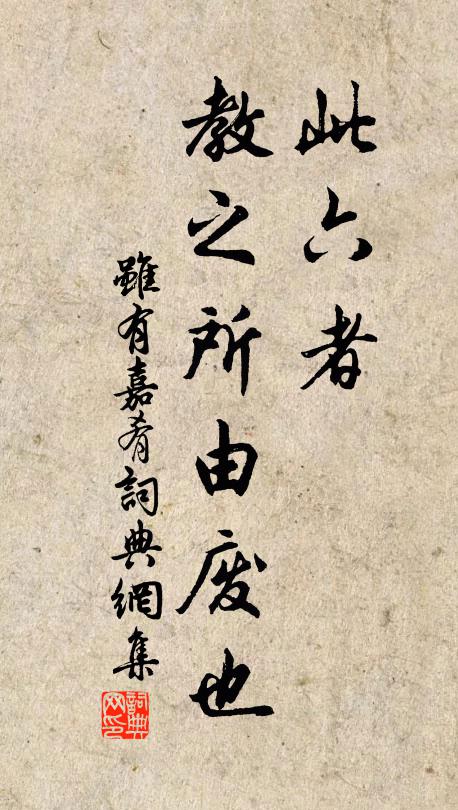 此六者
教之所由废也
雖有嘉肴詞典網集
詞典网印